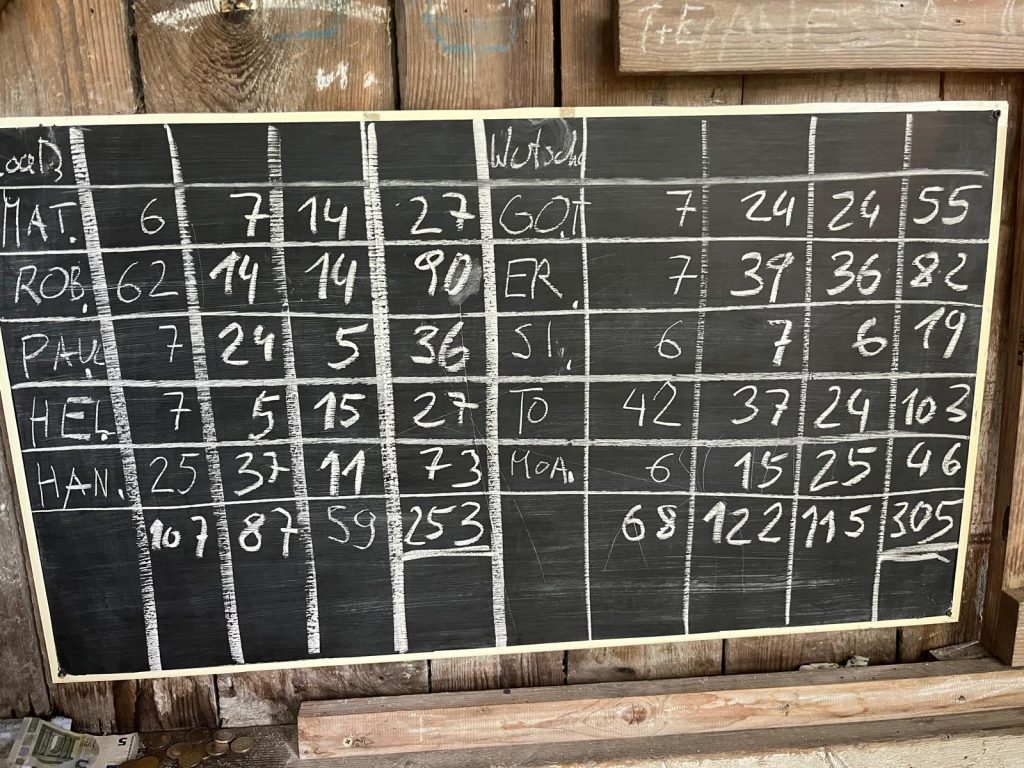 Wutsch
MAT. 6 7 14 27 GOT 7 24 24 55
ROB. 62 14 14 90 ER. 7 39 36 82
PAU. 7 24 5 36 SI. 6 7 6 19
HEI. 7 5 15 27 TO 42 37 24 103
HAN. 25 37 11 73 MOA. 6 15 25 46
107 87 59 253 68 122 115 305
5